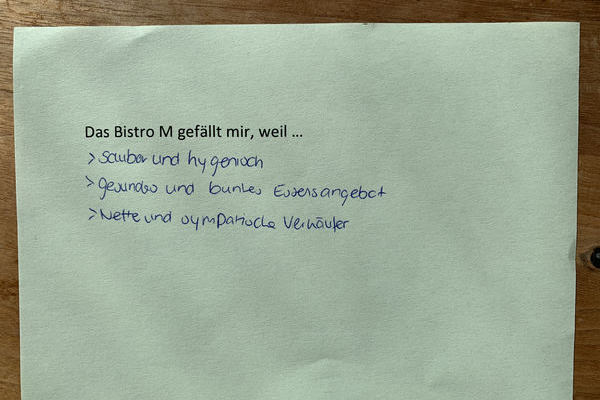 Das Bistro M gefällt mir, weil ...
> Sauber und hygenisch
> gesundes und buntes Essensangebot
> Nette und sympatische Verkäufer